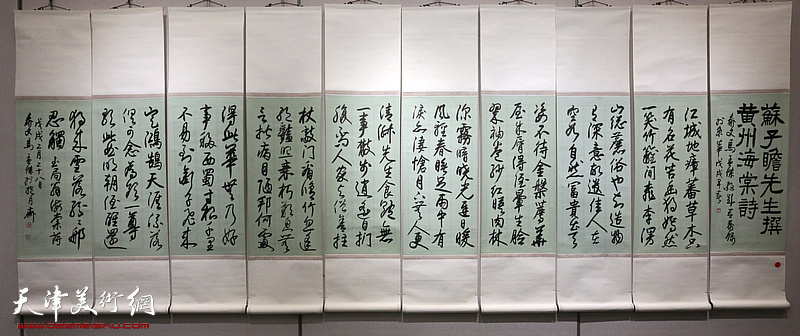 蘇子瞻先生撰
黄州海棠詩
江城地瘴蕃草木只
有名花苦幽獨嫣然
一笑竹籬間桃李漫
山總麤俗也知造物
有深意故遣佳人在
空谷自然富貴出天
姿不待金盤薦華
屋朱脣得酒暈生臉
翠袖卷紗紅映肉林
深霧暗曉光遲日暖
風輕春睡足雨中有
淚亦淒愴月下無人更
清淑先生食飽無
一事散步逍遥自捫
腹不問人家與僧舍拄
杖敲門看脩竹忽逢
絶豔照衰朽歎息無
言揩病目陋邦何處
得此華無乃好
事移西蜀寸根千里
不易到銜子飛來
定鴻鵠天涯流落
俱可念爲飲一尊
歌此曲明朝酒醒還
獨來雪落紛紛那
忍觸 玉局翁海棠詩
天津美術網